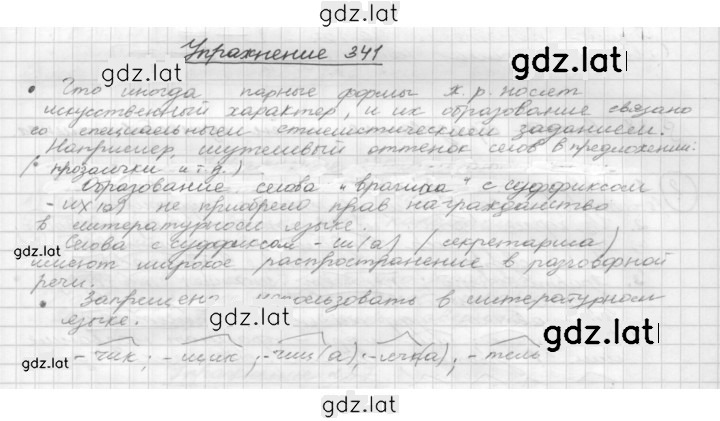 gdz.lat
Упражнение 341
gdz.lat
gdz.lat
• Что иногда парные формы ж.р. носят
искусственный характер, и их образование связано
со специальным стилистическим заданием.
Например, шутливый оттенок слов в предложении:
(" прозаички и т.д.)
Образование слова "врачиха" с суффиксом
-их(а) не приобрело прав на гражданство
в литературном языке.
gdz.lat
Слова с суффиксом -ш(а) (секретарша)
имеют широкое распространение в разговорной
речи.
• Запрещено использовать в литературном
языке.
gdz.lat
gdz.lat
-чик, -щик, -чиц(а), -ячк(а), -тель
gdz.lat